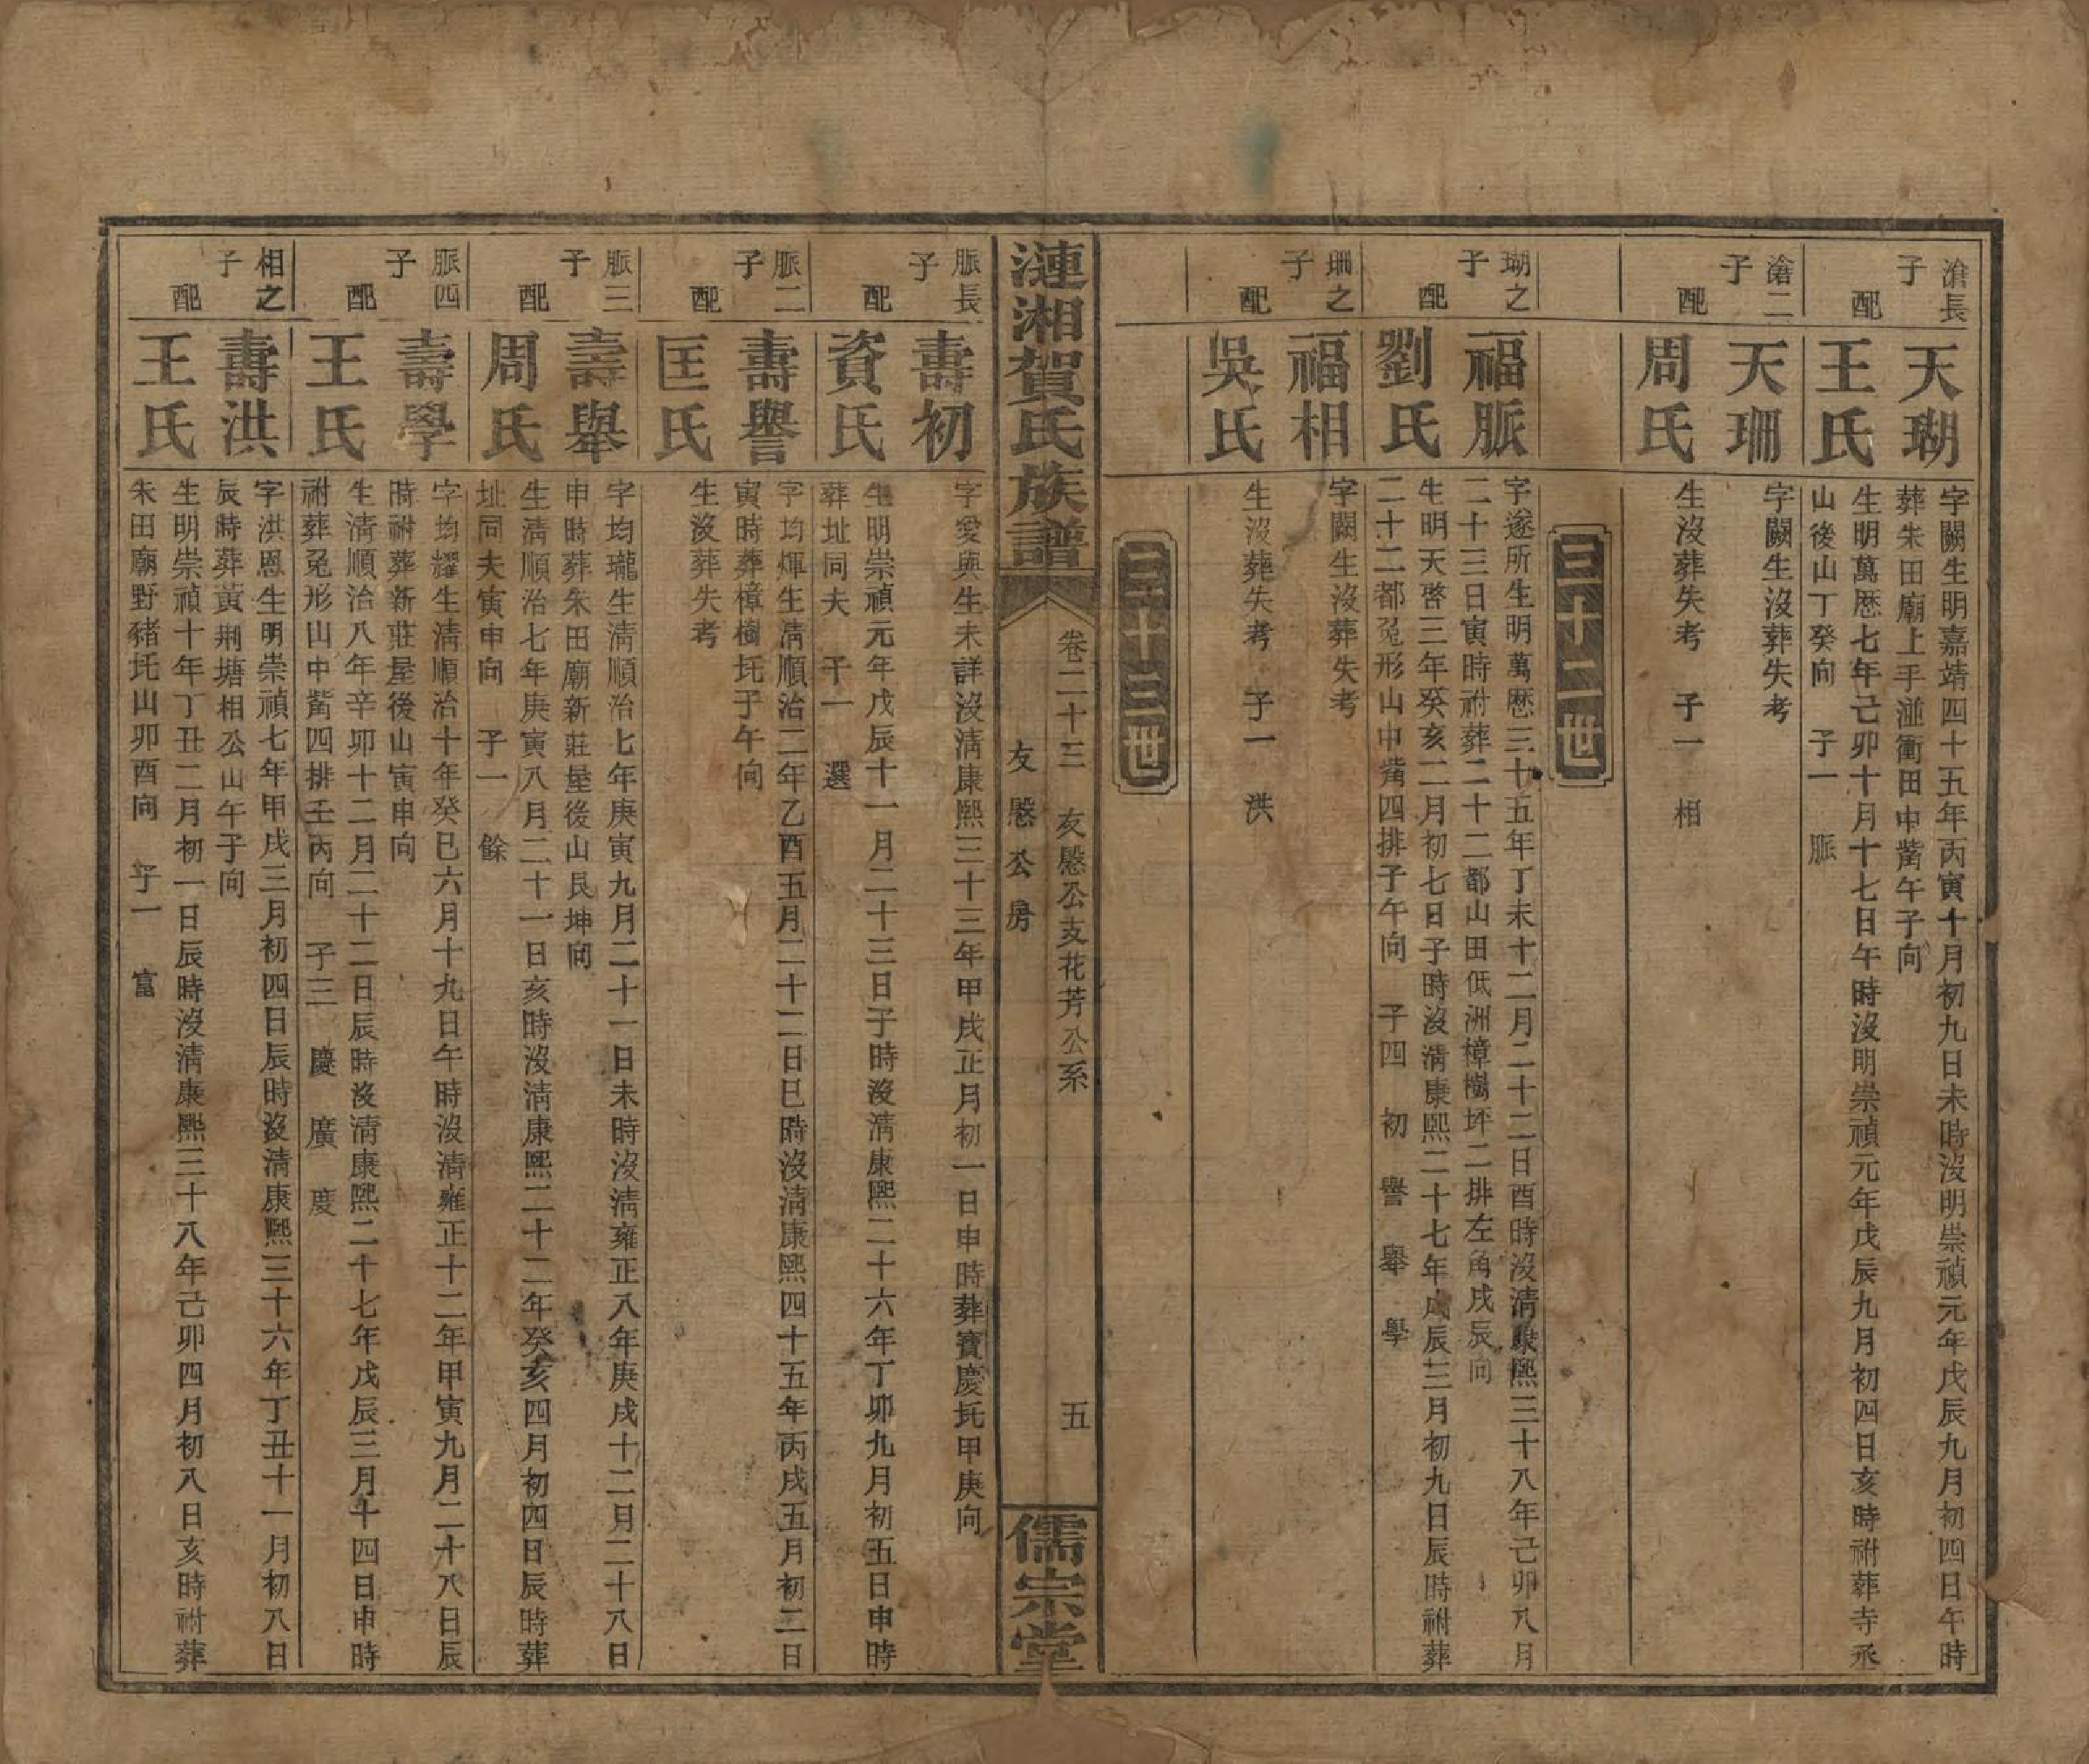 滄長子
天瑚
字闕生明嘉靖四十五年丙寅十月初九日未時沒明崇禎元年戊辰九月初四日午時
葬朱田廟上手湴衝田中嘴午子向
配
王氏
生明萬歷七年己卯十月十七日午時沒明崇禎元年戊辰九月初四日亥時祔葬寺丞
山後山丁癸向 子一 脈
滄二子
天珊
字闕生沒葬失考
配
周氏
生沒葬失考 子一 相
三十二世
瑚之子
福脈
字遂所生明萬歷三十五年丁未十二月二十二日酉時沒清康熙三十八年己卯八月
二十三日寅時祔葬二十二都山田低洲樟樹坪二排左角戌辰向
配
劉氏
生明天啓三年癸亥二月初七日子時沒清康熙二十七年戊辰三月初九日辰時祔葬
二十二都兔形山中嘴四排子午向 子四 初 譽 舉 學
珊之子
福相
字闕生沒葬失考
配
吳氏
生沒葬失考 子一 洪
三十三世
漣湘賀氏族譜
卷二十三 友愍公支花芳公系 五
友愍公房
儒宗堂
脈長子
壽初
字愛興生未詳沒清康熙三十三年甲戌正月初一日申時葬寶慶圫甲庚向
配
資氏
生明崇禎元年戊辰十一月二十三日子時沒清康熙二十六年丁卯九月初五日申時
葬址同夫 子一 選
脈二子
壽譽
字均煇生清順治二年乙酉五月二十二日巳時沒清康熙四十五年丙戌五月初二日
寅時葬樟樹圫子午向
配
匡氏
生沒葬失考
脈三子
壽舉
字均瓏生清順治七年庚寅九月二十一日未時沒清雍正八年庚戌十二月二十八日
申時葬朱田廟新莊屋後山艮坤向
配
周氏
生清順治七年庚寅八月二十一日亥時沒清康熙二十二年癸亥四月初四日辰時葬
址同夫寅申向 子一 餘
脈四子
壽學
字均耀生清順治十年癸巳六月十九日午時沒清雍正十二年甲寅九月二十八日辰
時祔葬新莊屋後山寅申向
配
王氏
生清順治八年辛卯十二月二十二日辰時沒清康熙二十七年戊辰三月十四日申時
祔葬兔形山中嘴四排壬丙向 子三 慶 廣 度
相之子
壽洪
字洪恩生明崇禎七年甲戌三月初四日辰時沒清康熙三十六年丁丑十一月初八日
辰時葬黃荆塘相公山午子向
配
王氏
生明崇禎十年丁丑二月初一日辰時沒清康熙三十八年己卯四月初八日亥時祔葬
朱田廟野豬圫山卯酉向 子一 富